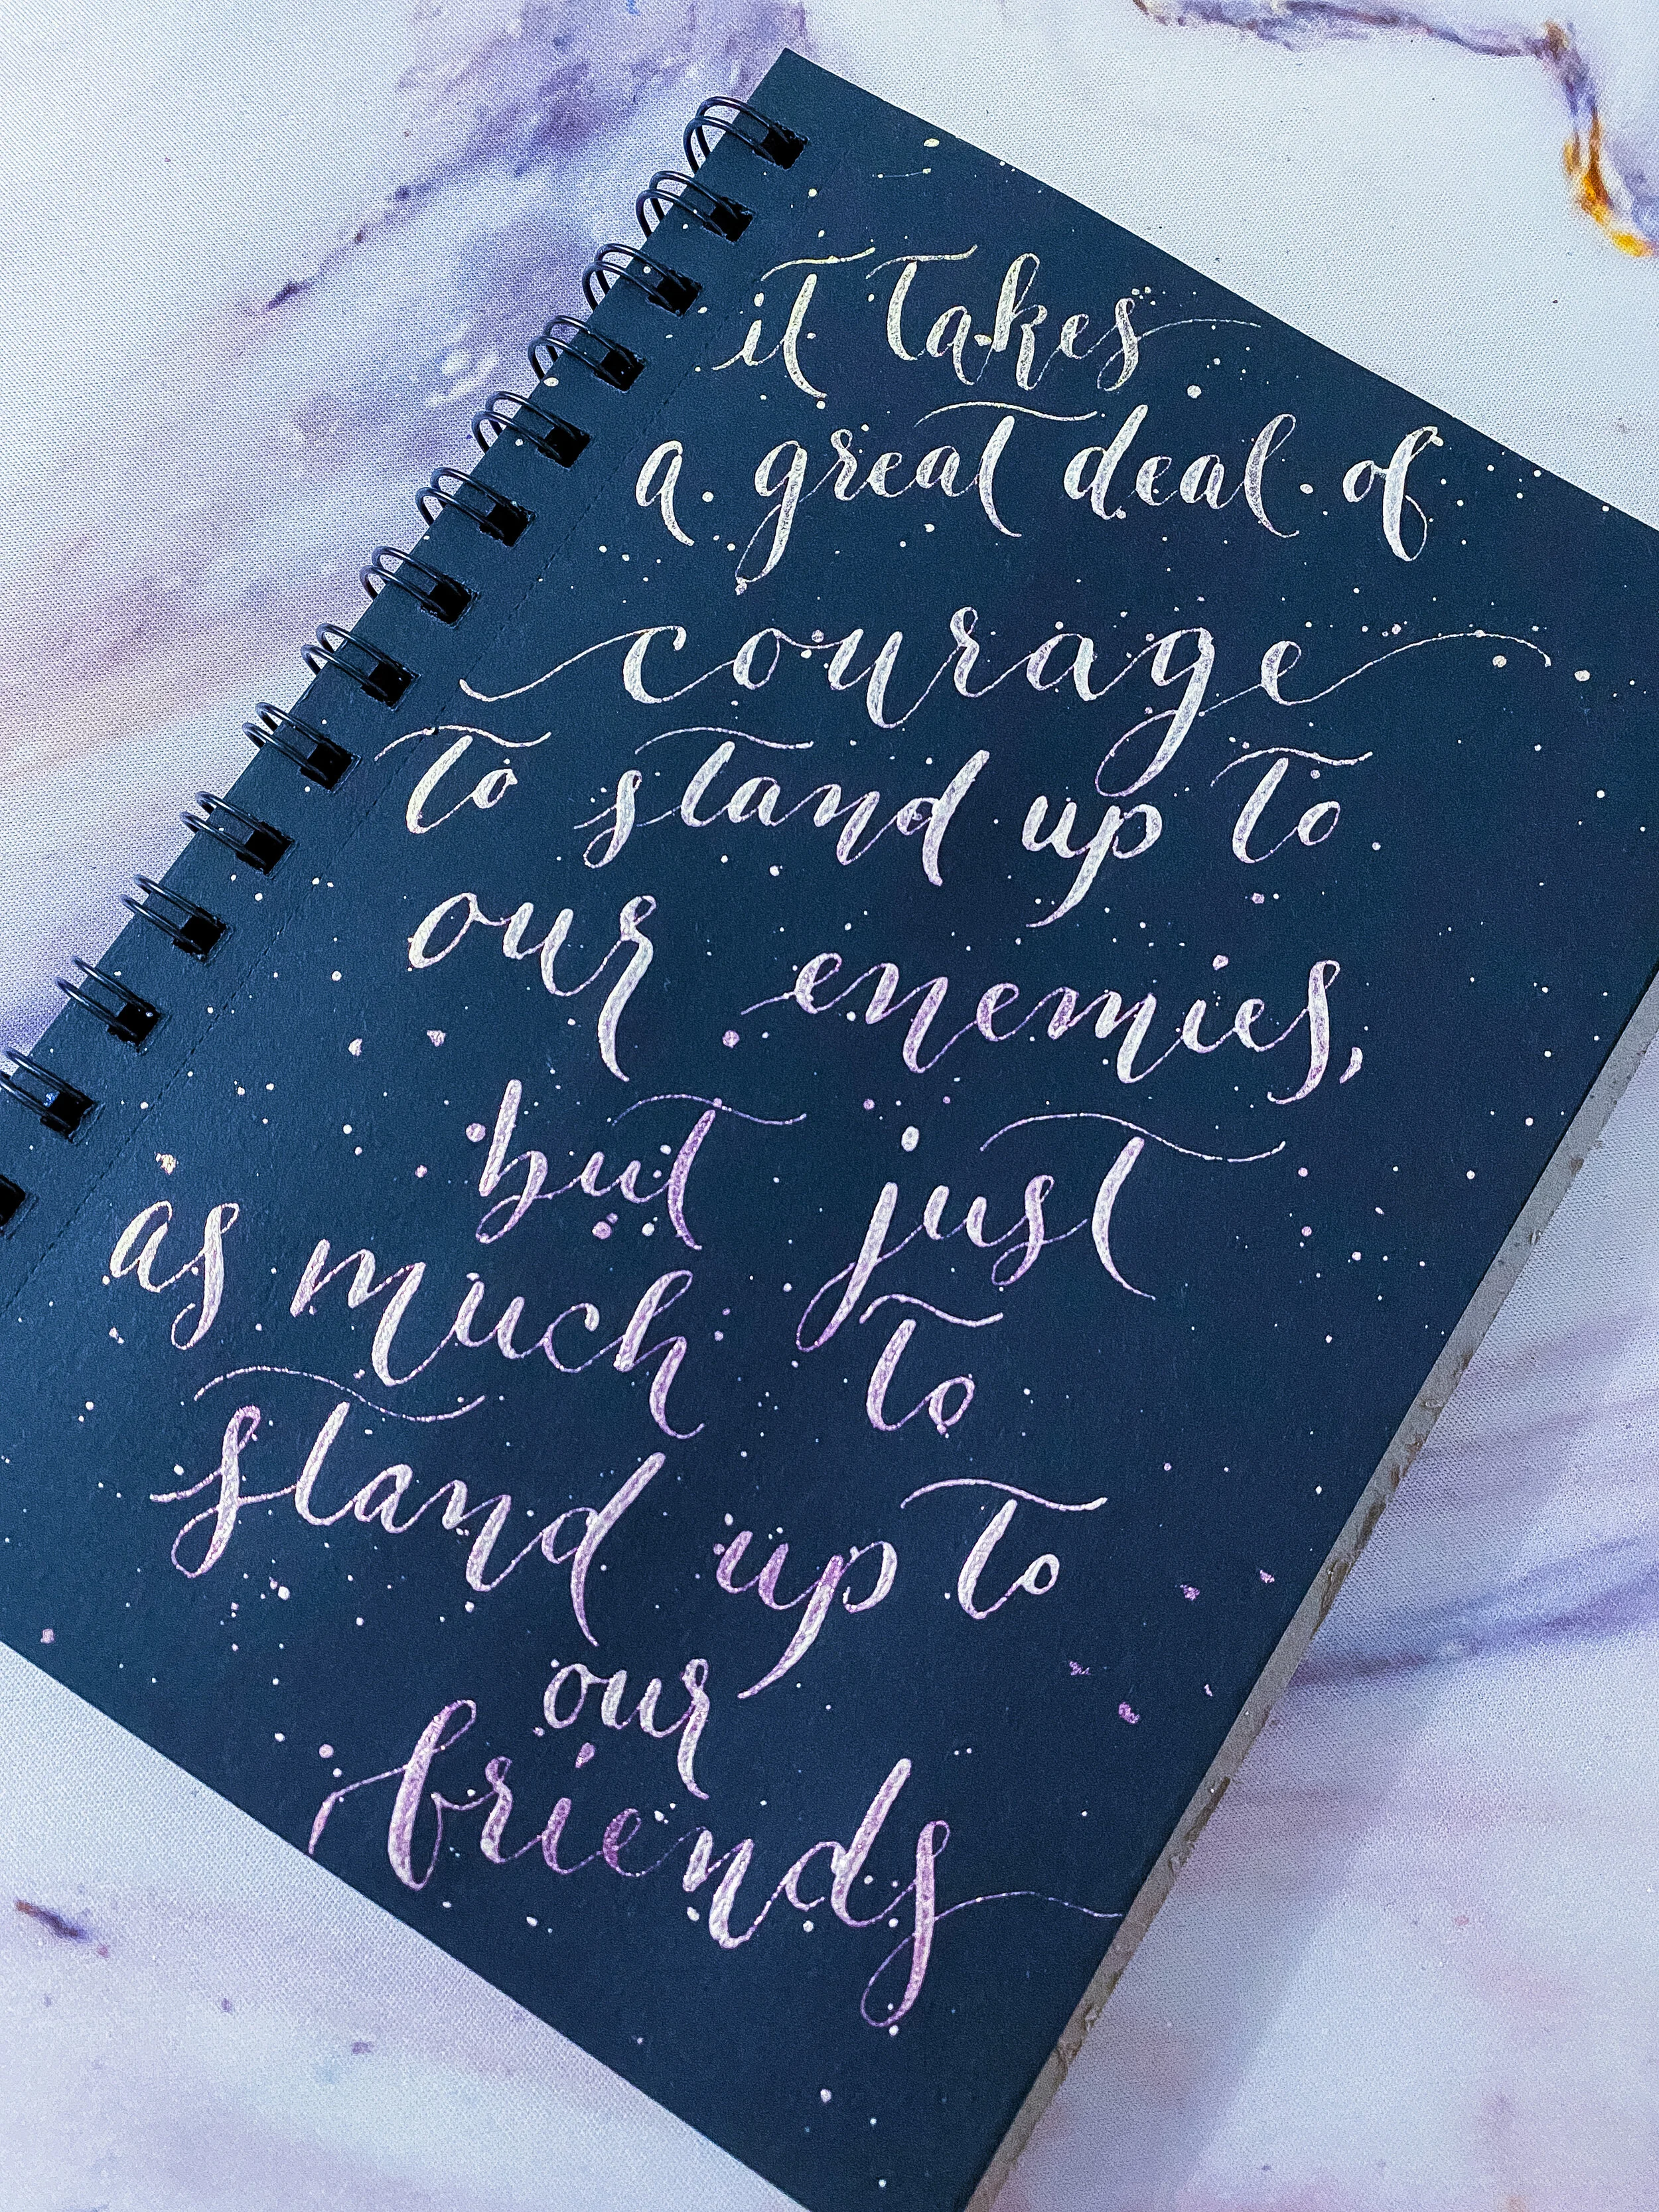 it takes
a great deal of
courage
to stand up to
our enemies,
but just
as much to
stand up to
our
friends